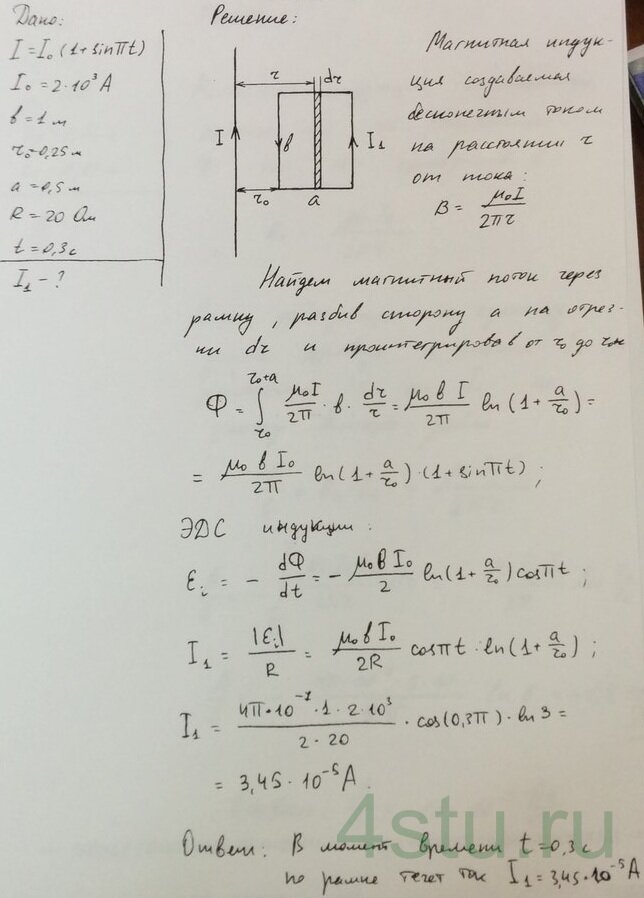 Дано:
I = I₀ (1 + sinπt)
I₀ = 2·10³ А
в = 1 м
r₀ = 0,25 м
a = 0,5 м
R = 20 Ом
t = 0,3 с
I₁ - ?
Решение:
r dr
I в I₁
r₀ a
Магнитная индук-
ция создаваемая
бесконечным током
на расстоянии r
от тока:
B = μ₀I / 2πr
Найдем магнитный поток через
рамку, разбив сторону a на отрез-
ки dr и проинтегрировав от r₀ до
Φ = ∫_{r₀}^{r₀+a} μ₀I/2π · в · dr/r = μ₀ в I/2π ln(1 + a/r₀) =
= μ₀ в I₀/2π ln(1 + a/r₀)·(1 + sinπt);
ЭДС индукции:
ℰᵢ = - dΦ/dt = - μ₀ в I₀/2 ln(1 + a/r₀) cosπt;
I₁ = |ℰᵢ|/R = μ₀ в I₀/2R cosπt · ln(1 + a/r₀);
I₁ = 4π·10⁻⁷·1·2·10³ / 2·20 · cos(0,3π) · ln 3 =
= 3,45·10⁻⁵ А.
Ответ: В момент времени t = 0,3 с
по рамке течет ток I₁ = 3,45·10⁻⁵ А
4stu.ru